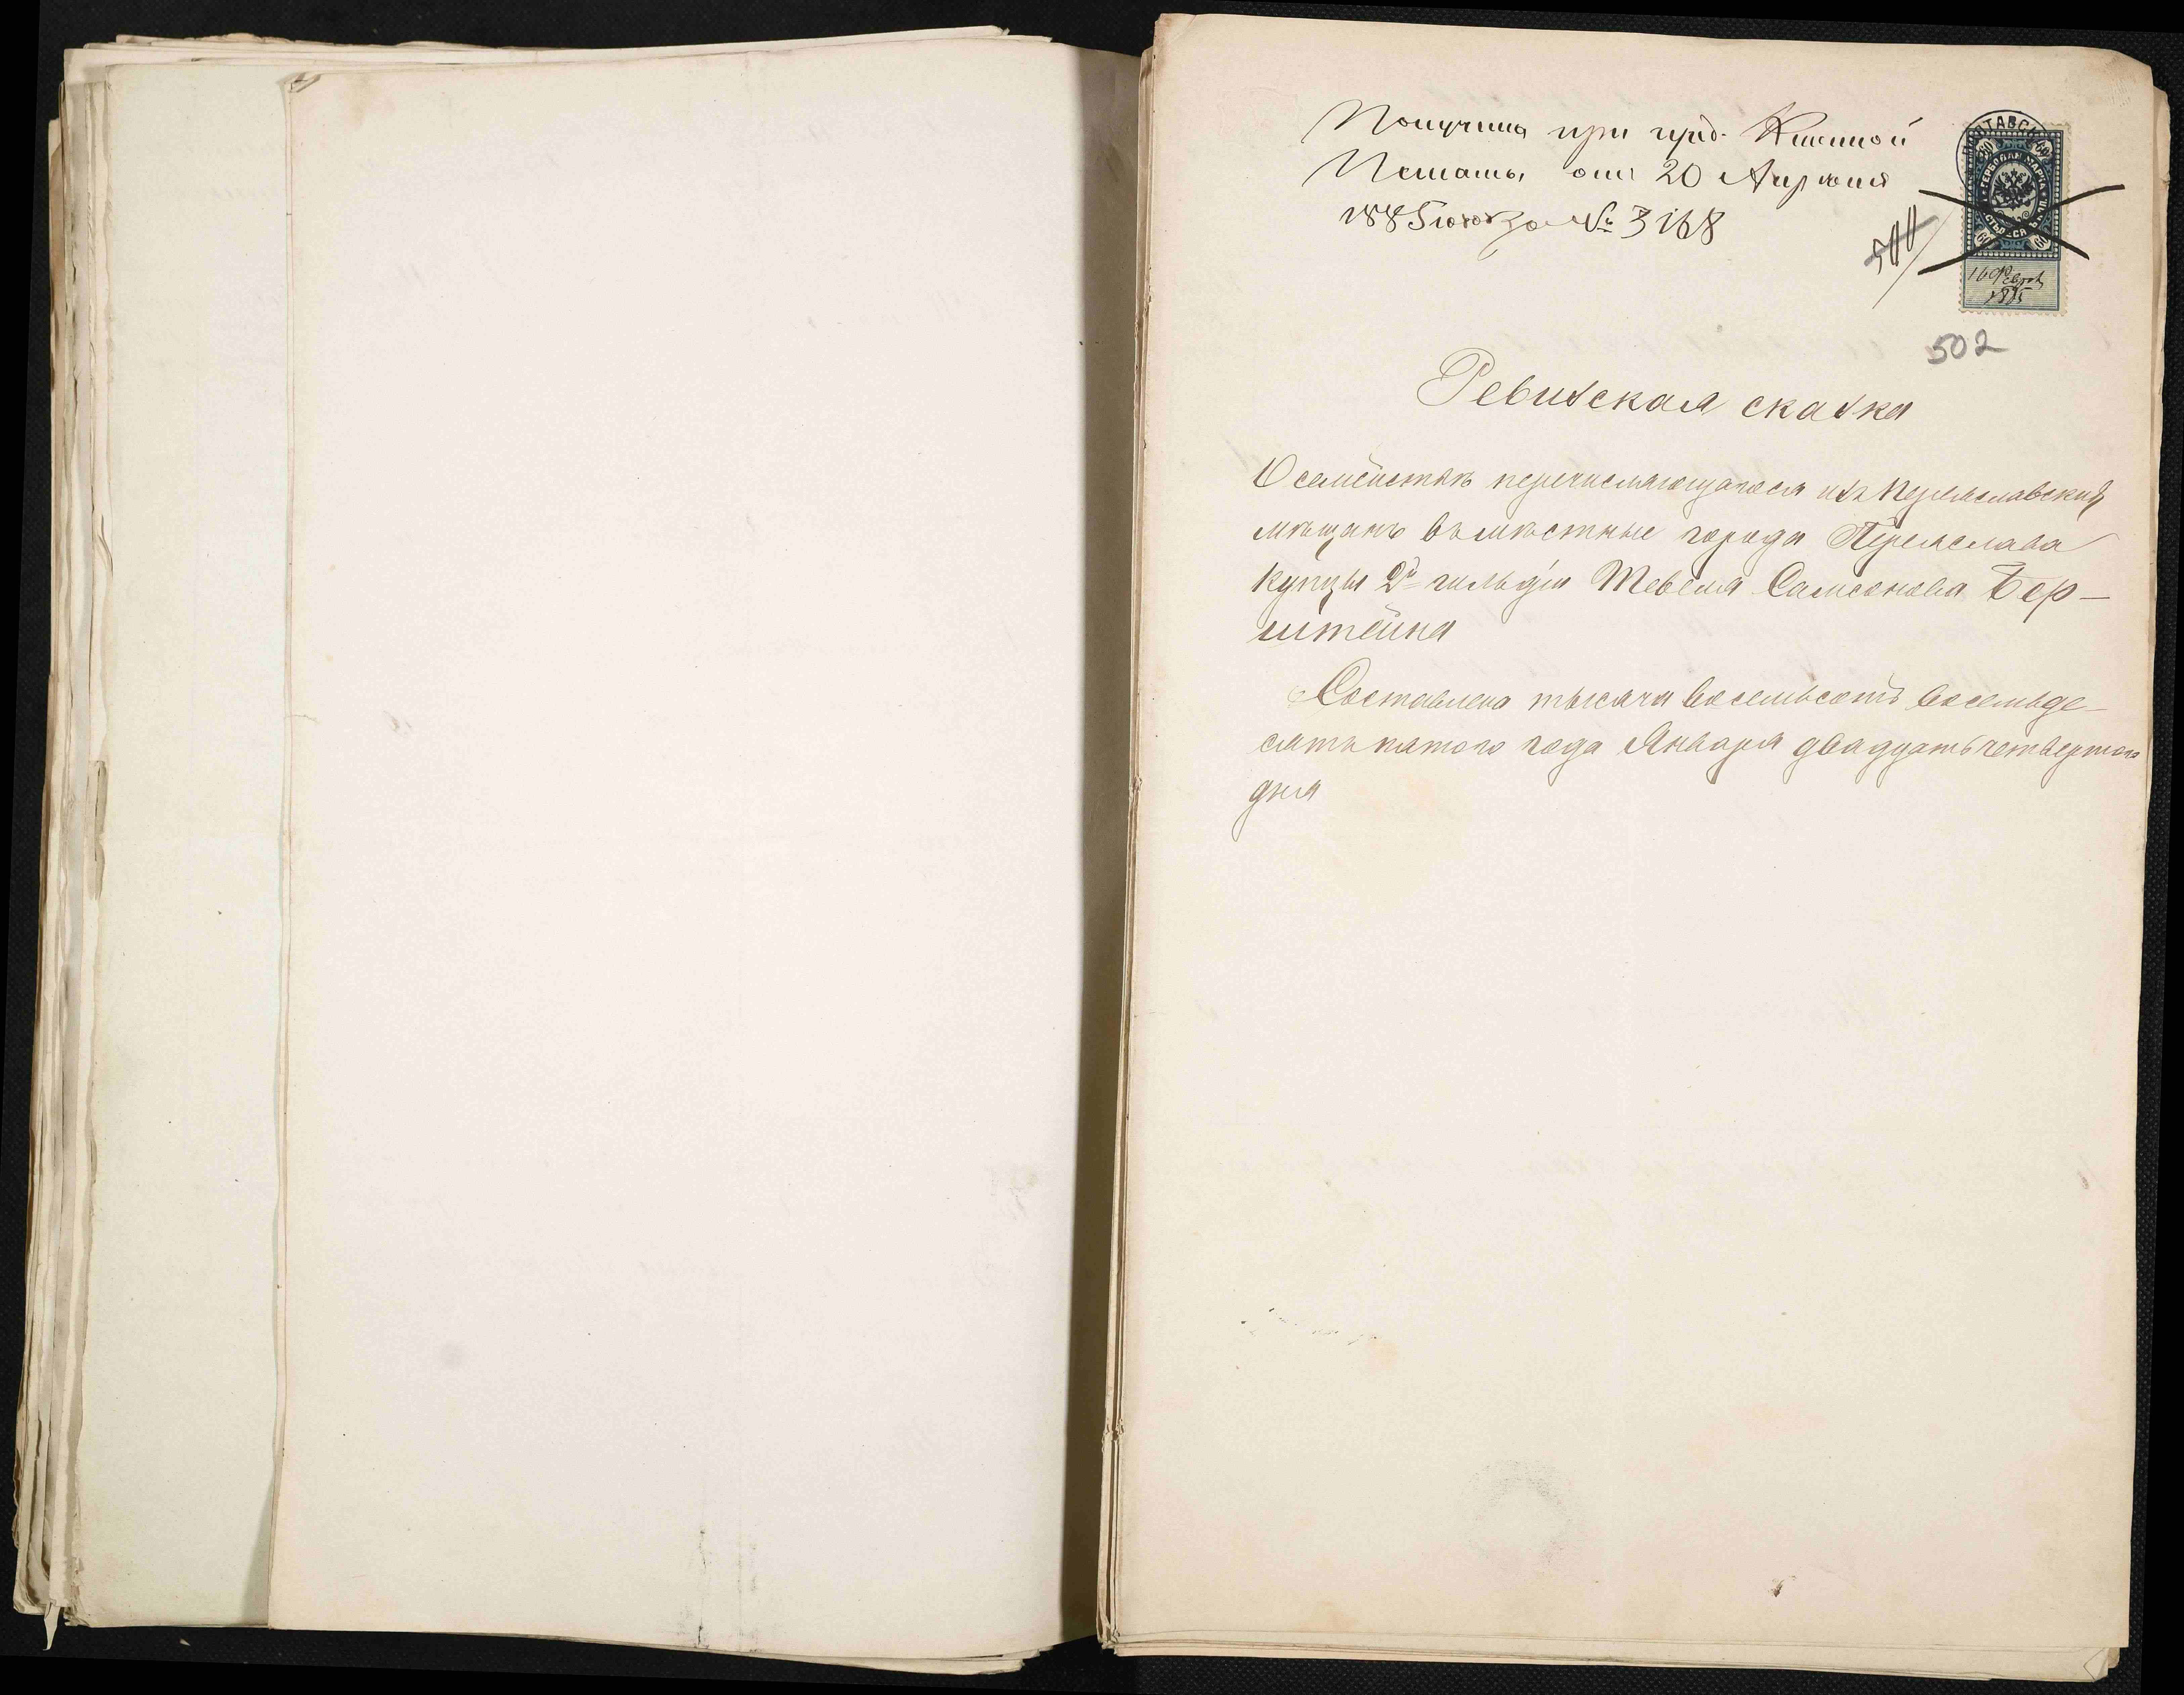 Получена при пред. Казенной
Палаты отъ 20 Апрѣля
1885 года за № 3168
ПОЛТАВСК
60 60
ГЕРБОВАЯ МАРКА
60 60
16 Февр.
1885
502
Ревизская сказка
О семействѣ перечисляющагося изъ Переяславскихъ
мѣщанъ въ мѣстные города Переяслава
купцы 2й гильдіи Тевеля Самсонова Бер-
штейна
Составлена тысяча восемьсотъ восемьде-
сятъ пятого года Января двадцать четвертого
дня